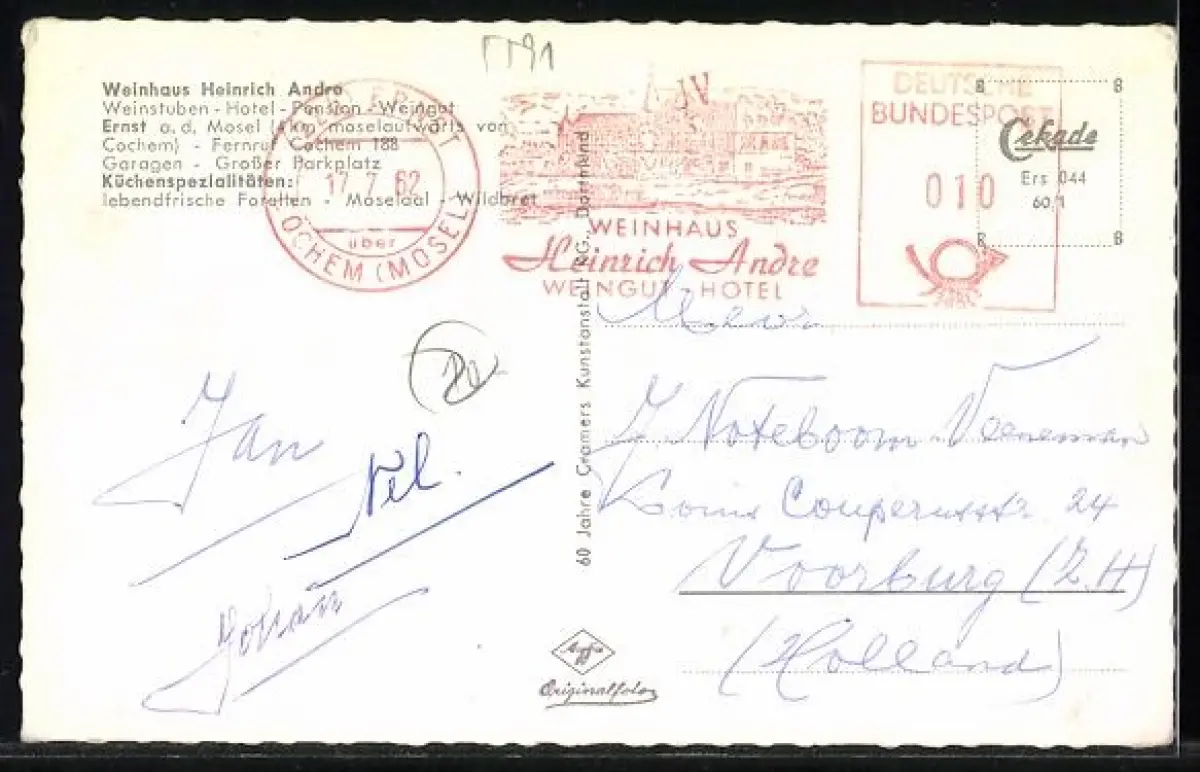 Weinhaus Heinrich Andre
Weinstuben - Hotel - Pension - Weingut
Ernst a. d. Mosel (4km moselaufwärts von
Cochem) - Fernruf Cochem 188
Garagen - Großer Parkplatz
Küchenspezialitäten:
lebendfrische Forellen - Moselaal - Wildbret
ERNST
17.7.62
über
COCHEM (MOSEL)
WEINHAUS
Heinrich Andre
WEINGUT - HOTEL
DEUTSCHE
BUNDESPOST
010
Cekade
Ers 044
60/1
60 Jahre Cramers Kunstanstalt KG., Dortmund
Jan
Nel.
Johan
Mevr.
J. Noteboom-Veeneman
Louis Couperusstr. 24
Voorburg (Z.H)
(Holland)
Agfa
Originalfoto